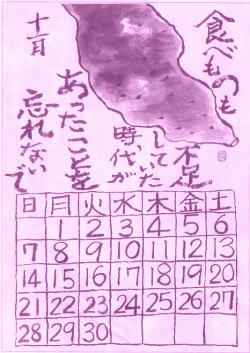 食べものも
不足
していた
時代が
あったことを
忘れないで
十一月
日 月 火 水 木 金 土
1 2 3 4 5 6
7 8 9 10 11 12 13
14 15 16 17 18 19 20
21 22 23 24 25 26 27
28 29 30